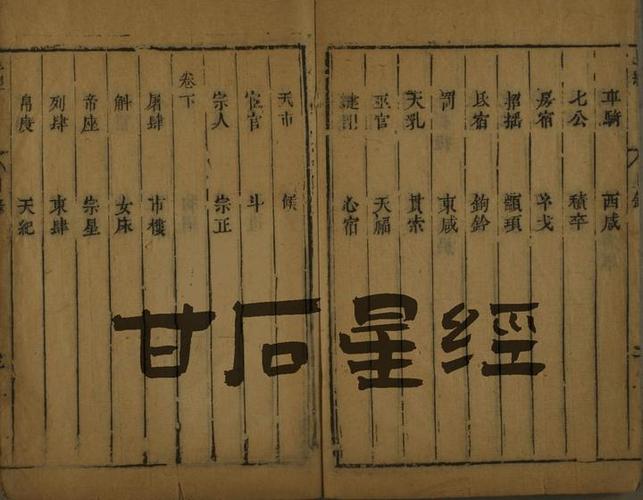 車騎 西咸
七公 積卒
房宿 梗戈
招搖 顓頊
氐宿 鉤鈐
罰 東咸
天乳 貫索
巫官 天福
鍵閉 心宿
天市 候
宦官 斗
宗人 宗正
卷下
屠肆 市樓
斛 女床
帝座 宗星
列肆 東肆
帛度 天紀
甘石星經